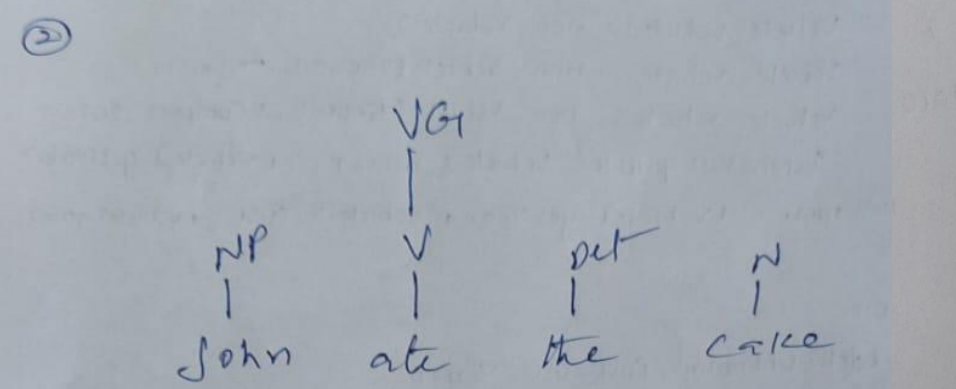 2
VG
NP V Det N
John ate the cake